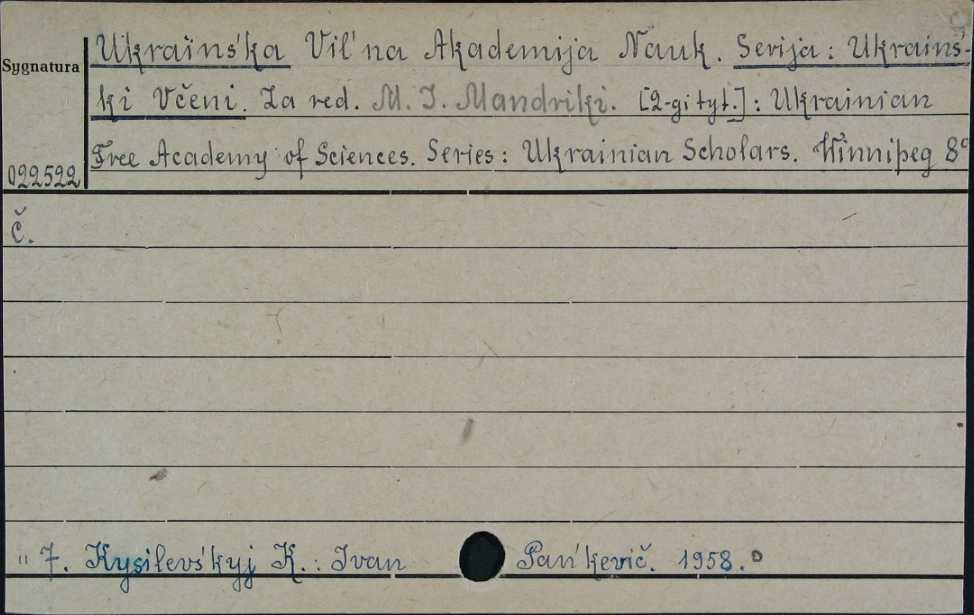 Ukraïns'ka Vil'na Akademija Nauk. Serija: Ukrains-
Sygnatura
ki Včeni. Za red. M. I. Mandriki. [2-gi tyt.]: Ukrainian
Free Academy of Sciences. Series: Ukrainian Scholars. Winnipeg 8°
022522
č.
" 7. Kysilevs'kyj K.: Ivan Pan'kevič. 1958.